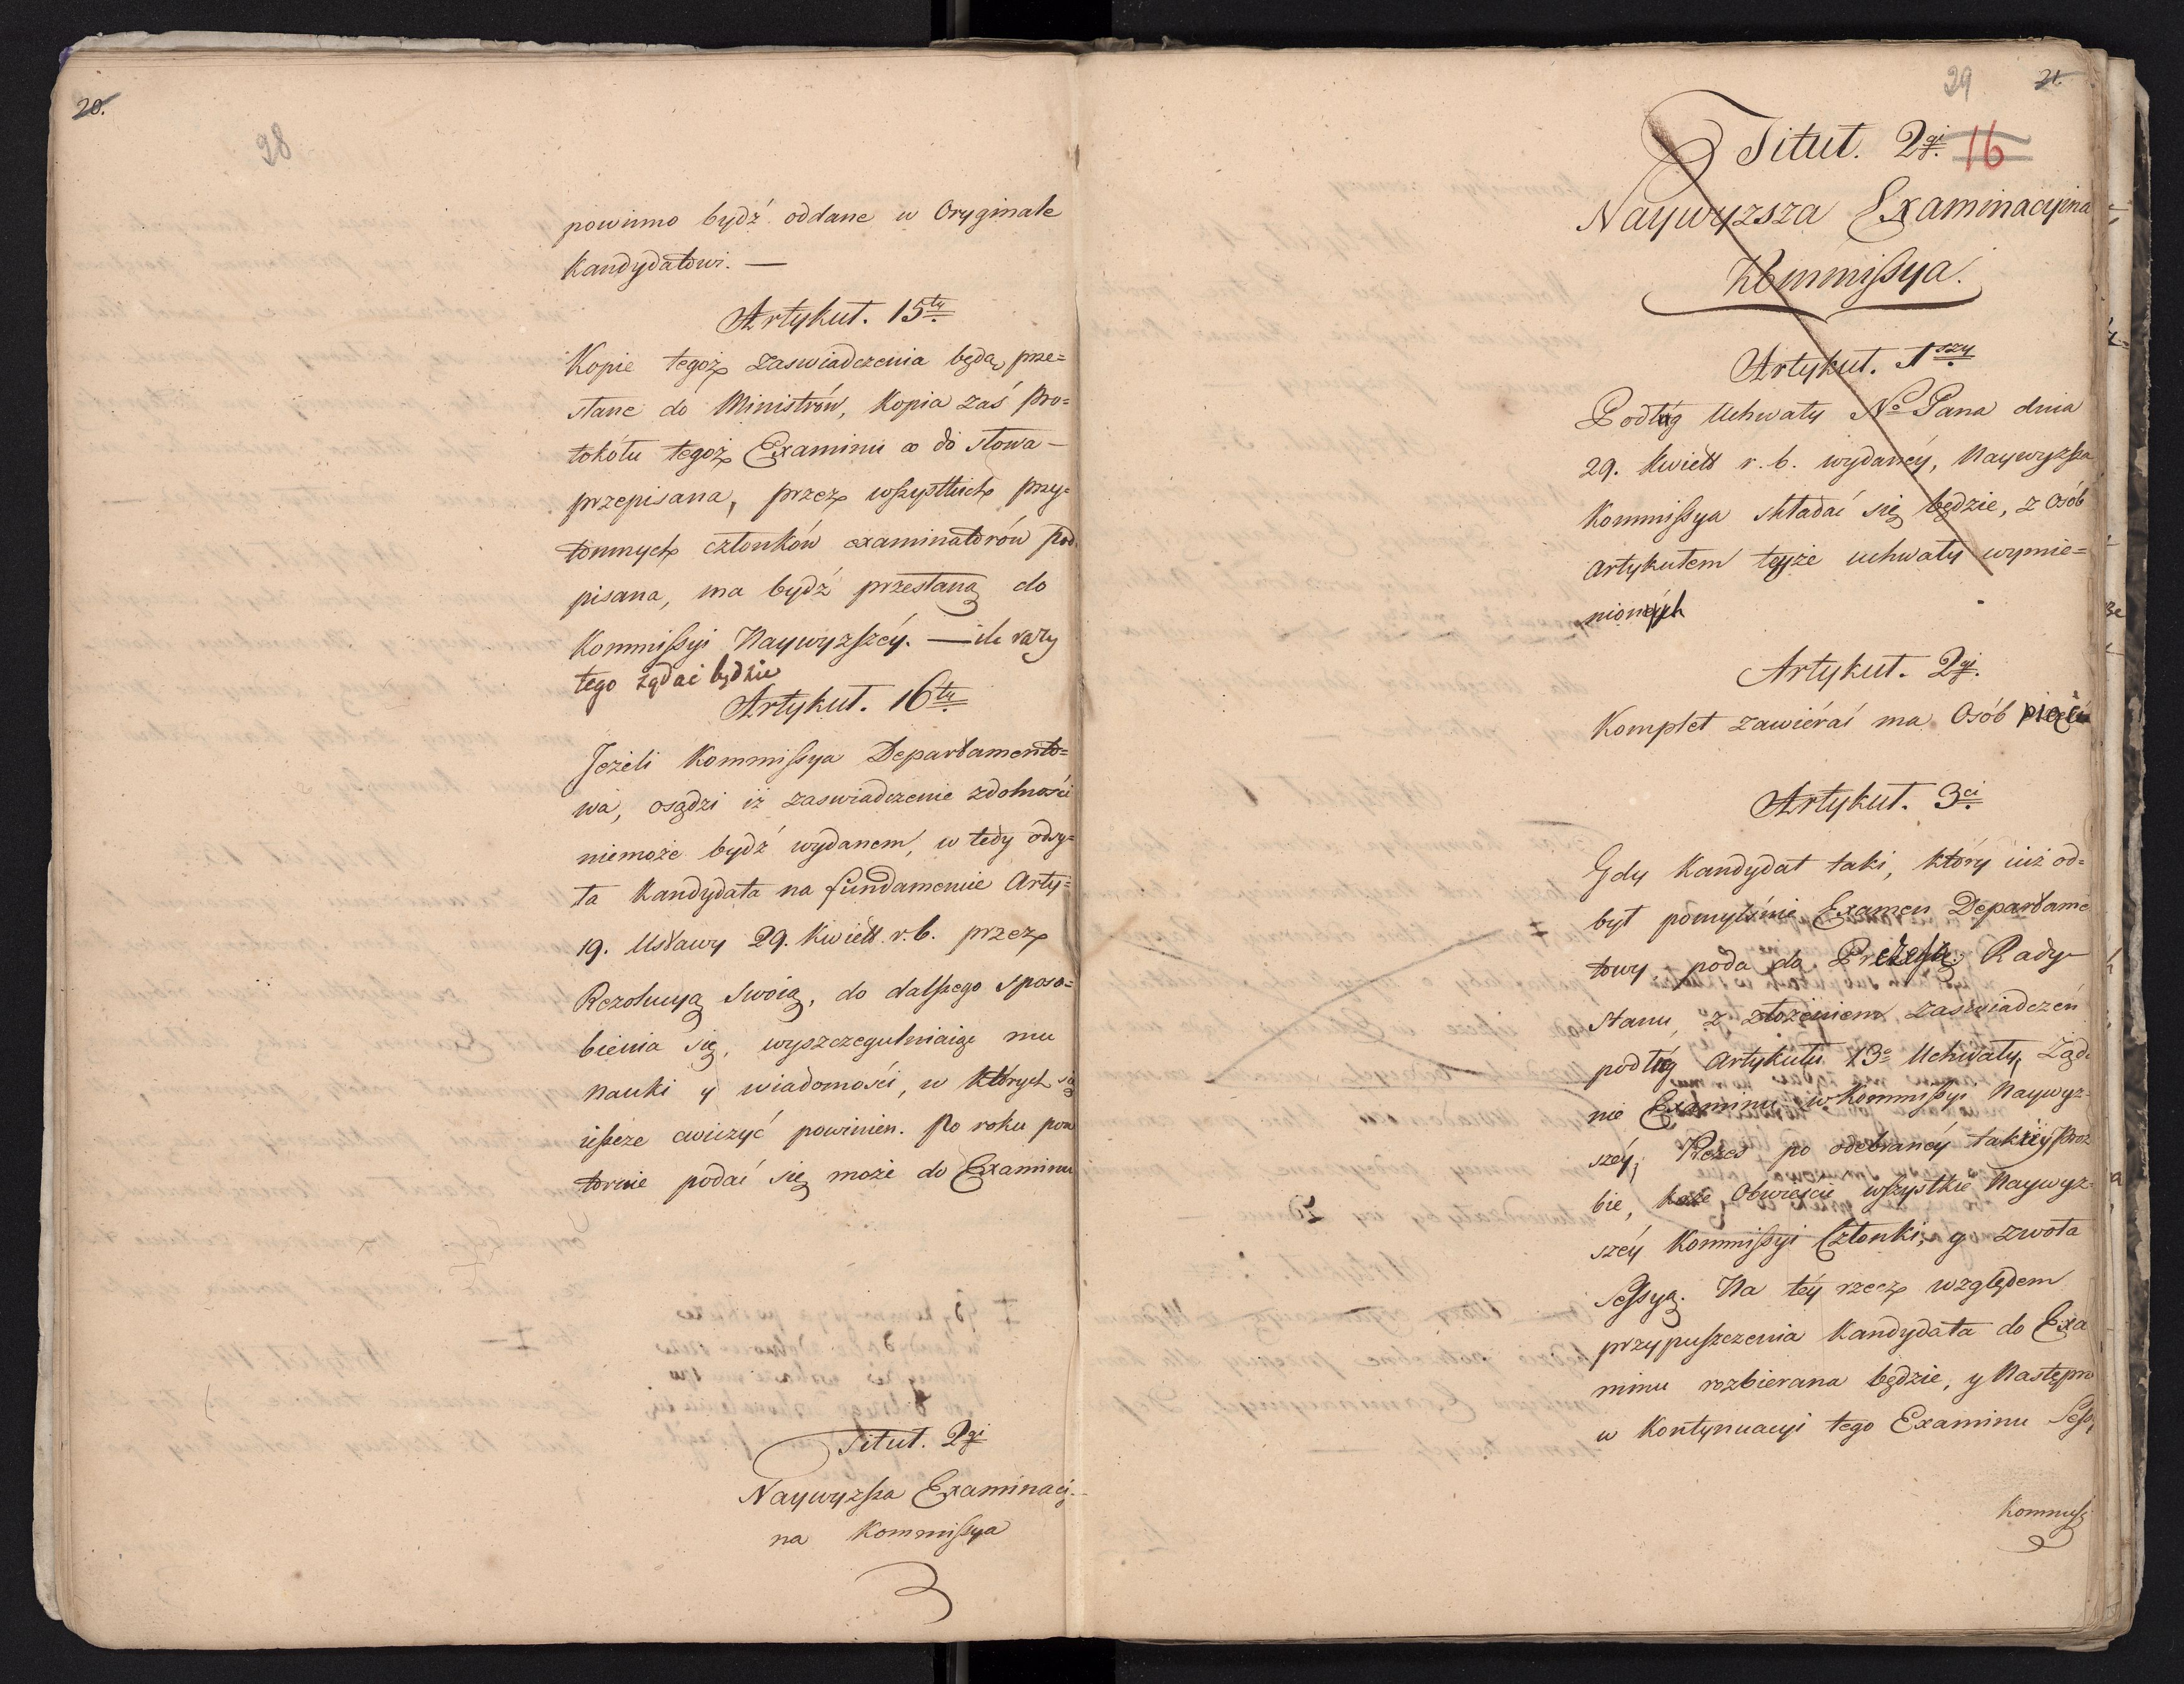 20.
28
powinno bydź oddane w Oryginale
Kandydatowi. —
Artykuł. 15ty.
Kopie tegoż zaswiadczenia będą prze=
słane do Ministrów, Kopia zaś Pro=
tokółu tegoż Examinu co do słowa —
przepisana, przez wszystkich przy=
tomnych członków examinatorów pod
pisana, ma bydź przesłaną do
Kommissyi Naywyzszéy. — ile razy
tego żądać będzie
Artykuł. 16ty.
Jeżeli Kommissya Departamento=
wa, osądzi iż zaswiadczenie zdolności
niemoże bydź wydanem, w tedy odsy=
ła Kandydata na fundamencie Arty=
19. Ustawy 29. Kwiett. r. b. przez
Rezolucyą Swoią, do dalszego sposo=
bienia się, wyszczegulniaiąc mu
nauki y wiadomości, w których się
ieszcze cwiczyć powinien. Po roku pow
tornie podać się może do Examinu
Tituł. 2gi
Naywyzsza Examinacy=
na Kommissya
29
21.
Tituł. 2gi. 16
Naywyzsza Examinacyina
Kommissya.
Artykuł. 1szy
Podług Uchwały No Pana dnia
29. Kwiett r. b. wydanéy, Naywyzsza
Kommissya składać się będzie, z Osób
Artykułem teyże uchwały wymie=
nionych
Artykuł. 2gi.
Komplet zawiérać ma Osób pięciu
Artykuł. 3ci.
Gdy Kandydat taki, który iuż od=
był pomyślnie Examen Departame
towy poda do Prezesa Rady
Stanu, z złożeniem zaswiadczeń
podług Artykułu 13o Uchwały, Żąda
nie Examinu w Kommissyi Naywyz=
széy, Prezes po odebranéy takiéy Proź
bie, każe Obwieścić wszystkie Naywyz=
széy Kommissyi Członki, y zwoła
Sessyą. Na téy rzecz względem
przypuszczenia Kandydata do Exa
minu rozbierana będzie, y Następno
w Kontynuacyi tego Examinu Sess,
Kommiss